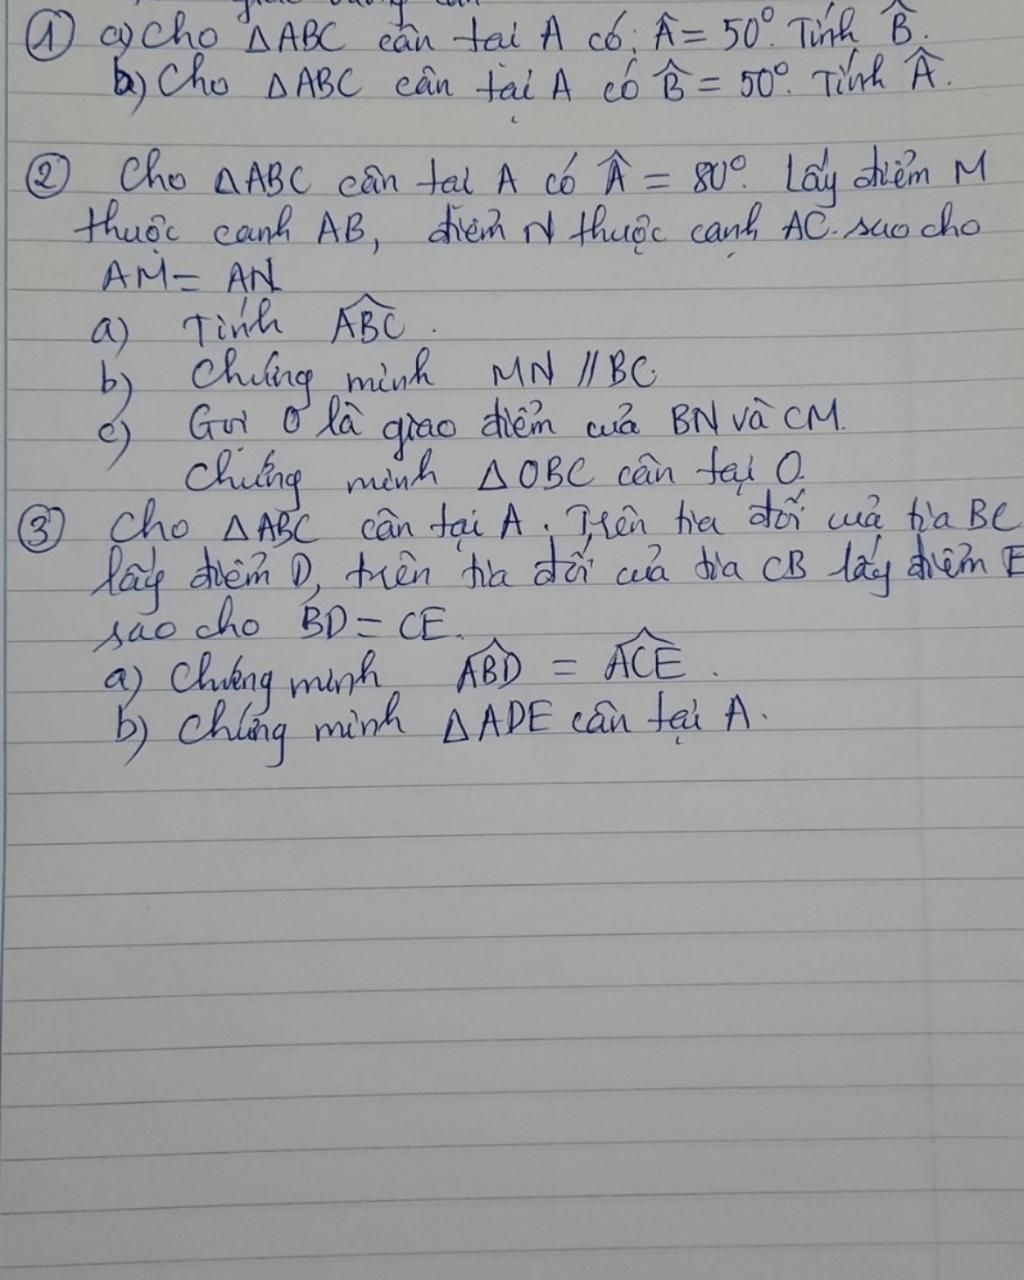 ① a) Cho △ABC cân tại A có: Â = 50°. Tính B̂.
b) Cho △ABC cân tại A có B̂ = 50°. Tính Â.
② Cho △ABC cân tại A có Â = 80°. Lấy điểm M
thuộc cạnh AB, điểm N thuộc cạnh AC. sao cho
AM = AN
a) Tính ABC.
b) Chứng minh MN // BC.
c) Gọi O là giao điểm của BN và CM.
Chứng minh △OBC cân tại O.
③ Cho △ABC cân tại A. Trên tia đối của tia BC
lấy điểm D, trên tia đối của tia CB lấy điểm E
sao cho BD = CE.
a) Chứng minh ABD = ACE.
b) Chứng minh △ADE cân tại A.